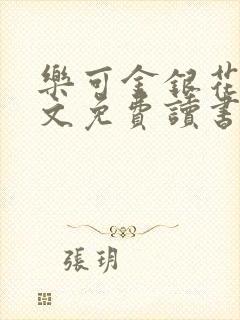 樂可金銀花
文免費讀書
張玥